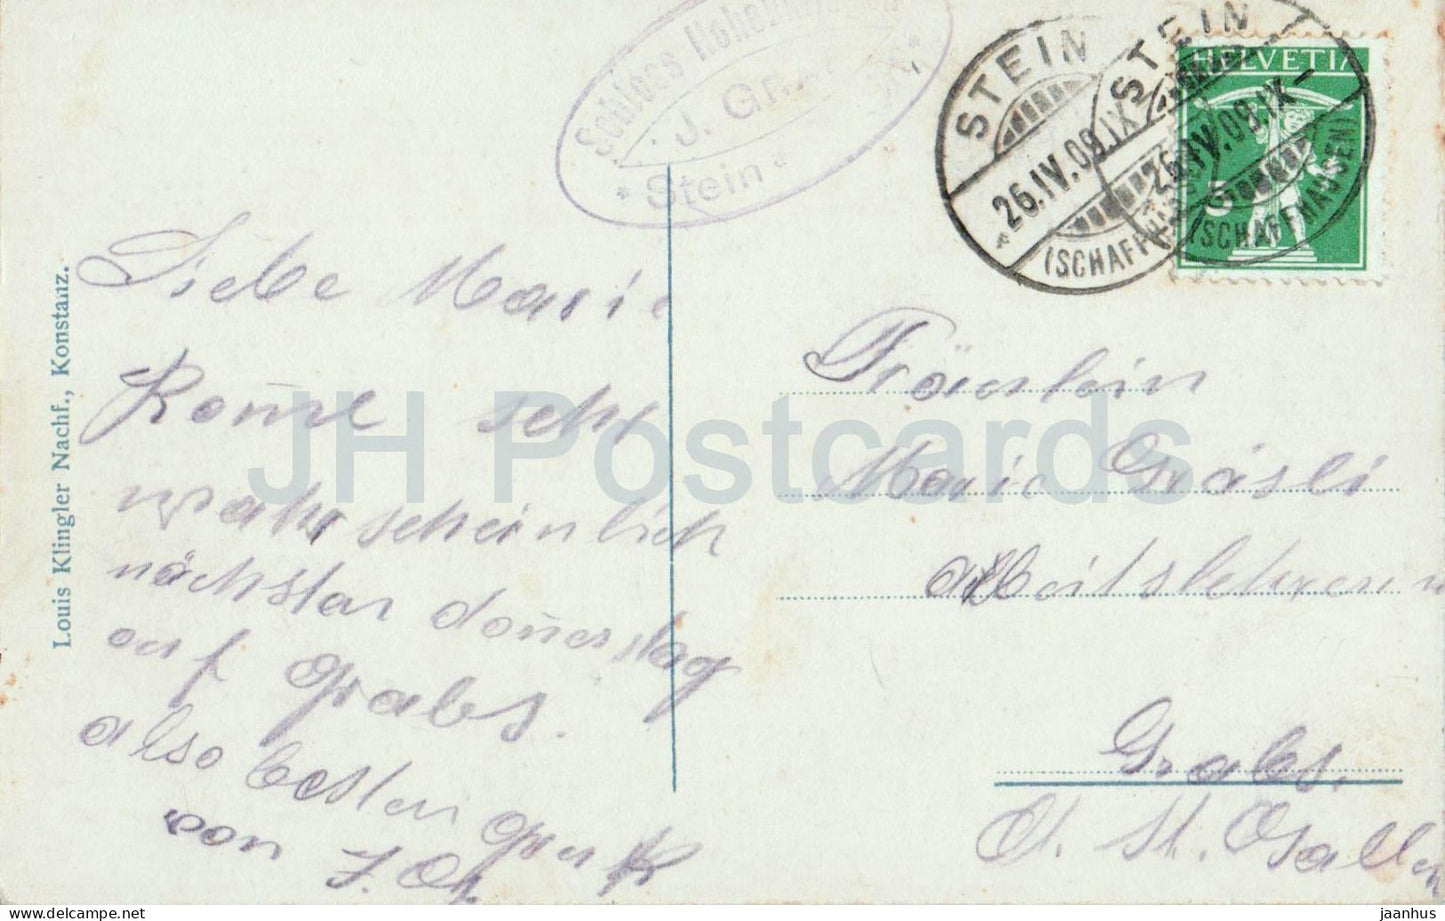 Schloss
J.
* Stein *
STEIN
26.IV.09.IX
(SCHAFFH
STEIN
26.IV.09.IX-
(SCHAFFHAUSEN)
HELVETIA
5
Liebe Marie
Kom̄e sehr
wahrscheinlich
nächsten don̄erstag
auf Grabs.
also besten Gruss
von J. G.
Fräulein
Marie Gräsli
Arbeitslehrerin
Grabs.
Ct. St. Gallen
Louis Klingler Nachf., Konstanz.
JH Postcards
jaanhus @ delcampe.net